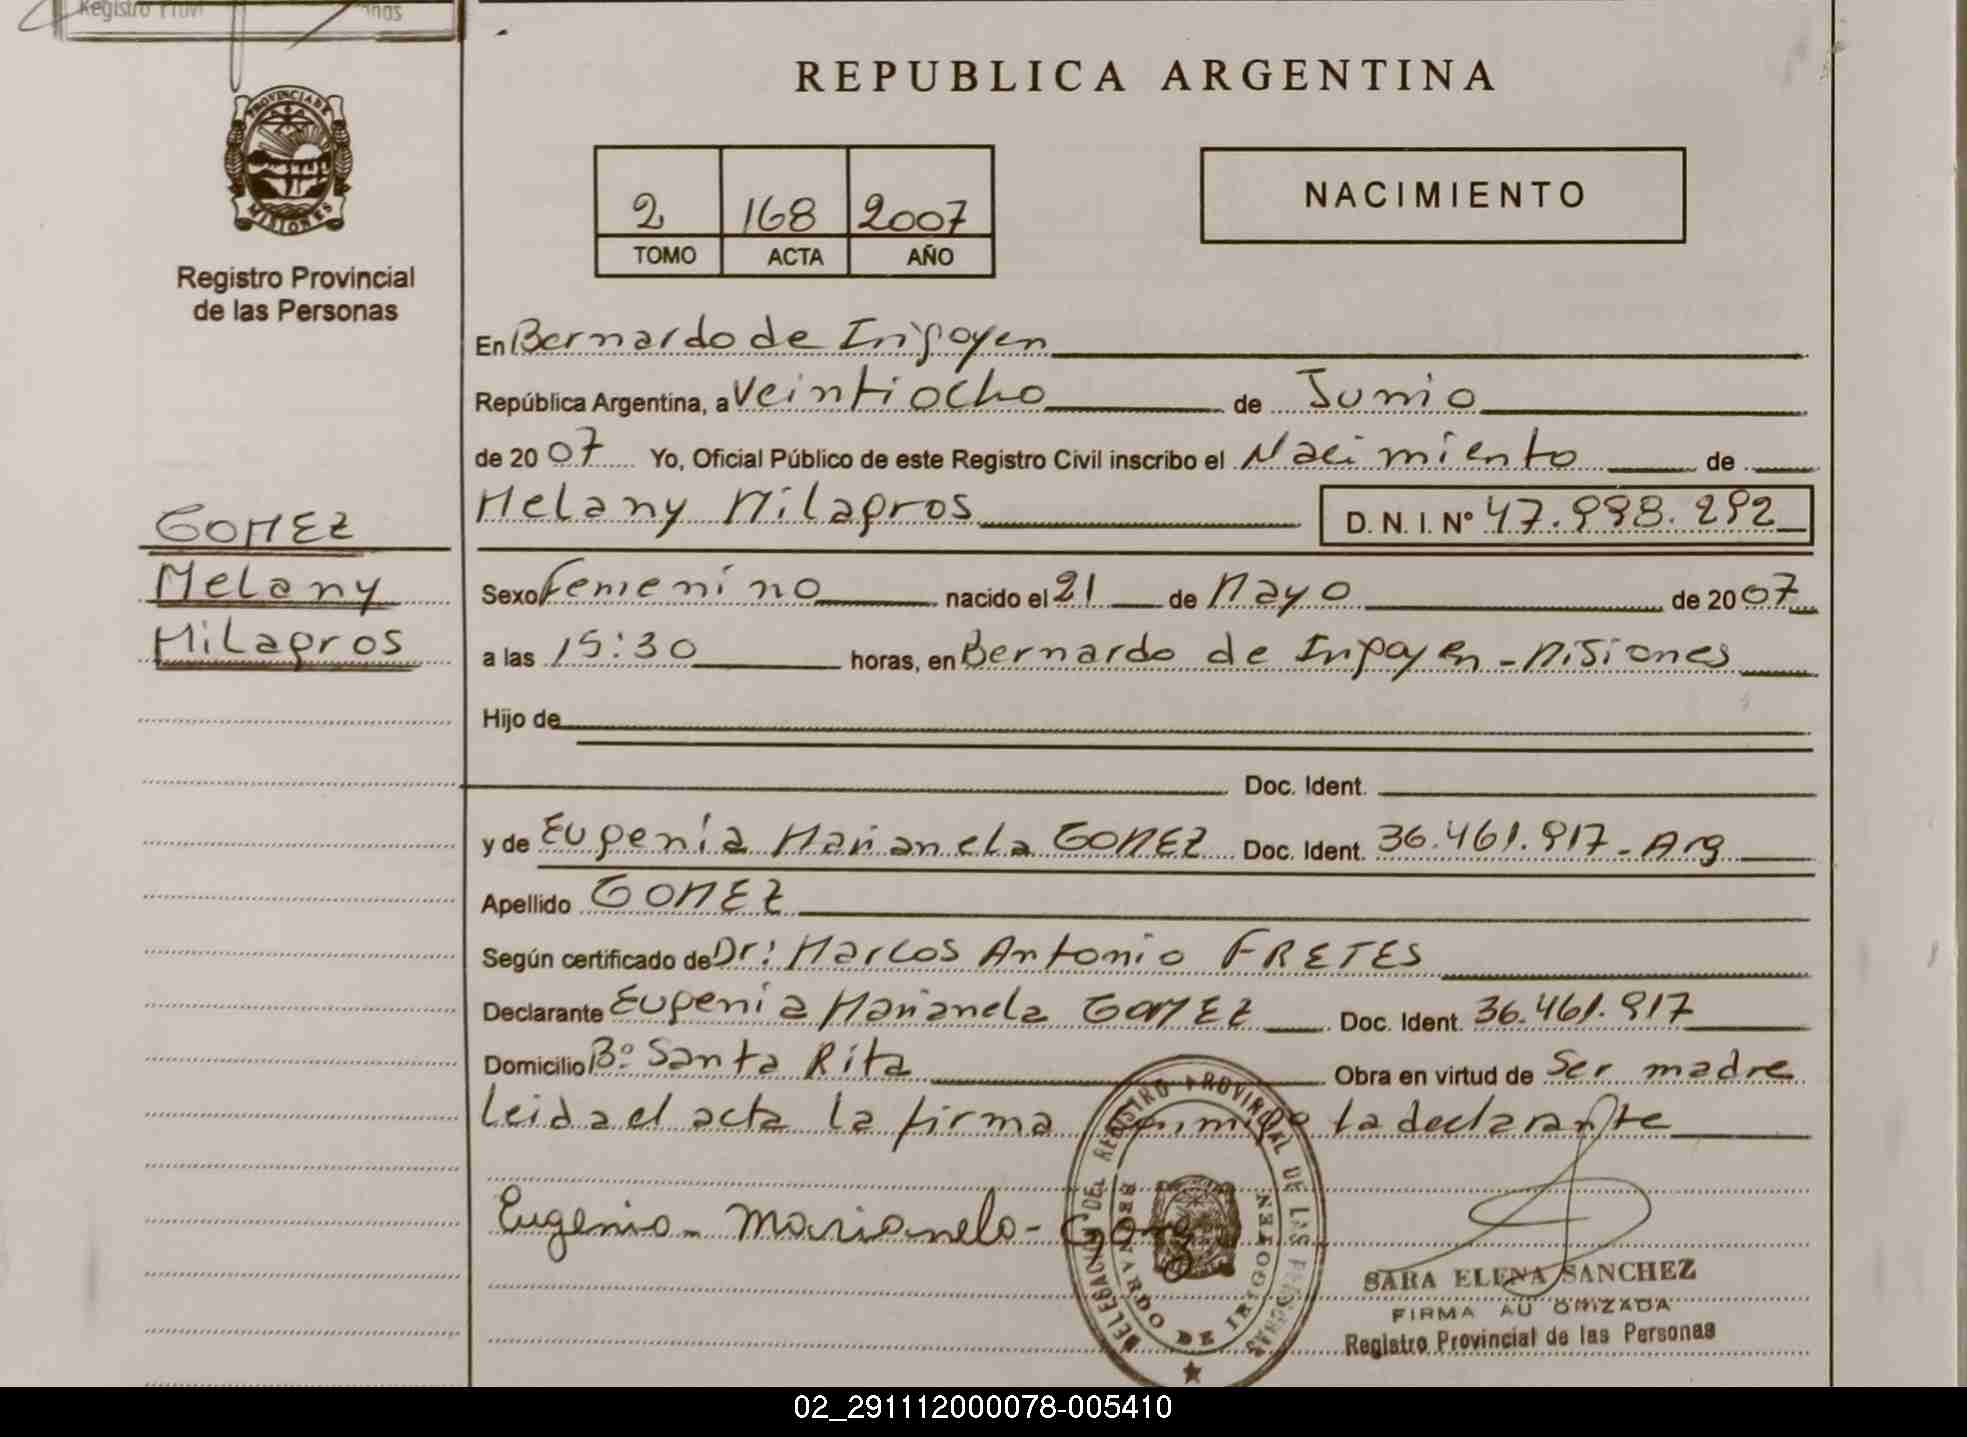 Registro Provi
REPUBLICA ARGENTINA
PROVINCIA DE
MISIONES
Registro Provincial
de las Personas
2 168 2007
TOMO ACTA AÑO
NACIMIENTO
En Bernardo de Irigoyen
República Argentina, a Veintiocho de Junio
de 2007 Yo, Oficial Público de este Registro Civil inscribo el Nacimiento de
Melany Milagros D. N. I. Nº 47.998.292
GOMEZ
Melany
Milagros
Sexo Femenino nacido el 21 de Mayo de 2007
a las 15:30 horas, en Bernardo de Irigoyen - Misiones
Hijo de
Doc. Ident.
y de Eugenia Marianela GOMEZ Doc. Ident. 36.461.917 - Arg
Apellido GOMEZ
Según certificado de Dr: Marcos Antonio FRETES
Declarante Eugenia Marianela GOMEZ Doc. Ident. 36.461.917
Domicilio Bº Santa Rita Obra en virtud de Ser madre
Leida el acta la firma conmigo la declarante
Eugenia - Marianela -
DELEGACION DEL REGISTRO PROVINCIAL DE LAS PERSONAS
BERNARDO DE IRIGOYEN
SARA ELENA SANCHEZ
FIRMA AUTORIZADA
Registro Provincial de las Personas
02_291112000078-005410